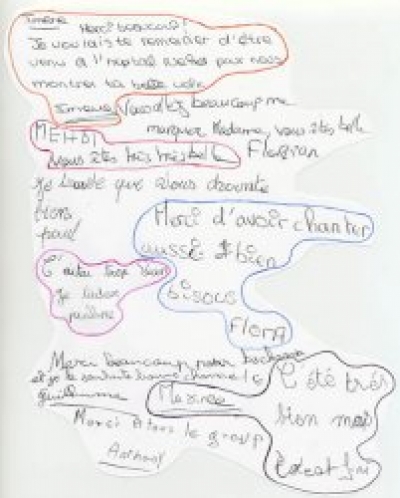 Imène Merci beaucoup!
Je voulais te remercier d'être
venu à l'hopital Necker pour nous
montrer ta belle voix
Imene Vous allez beaucoup me
manquer Madame, vous êtes belle
MEHDI
vous êtes très très belle Florian
que vous
bien
paul
Merci d'avoir chanter
aussi bien
bisous
Flora
C'
trop bien
Je
pauline
Merci beaucoup pour
et je te souhaite bonne chance
guillaume
Maxime
C'été trés
bien mais
Merci à tous le group
Anthony